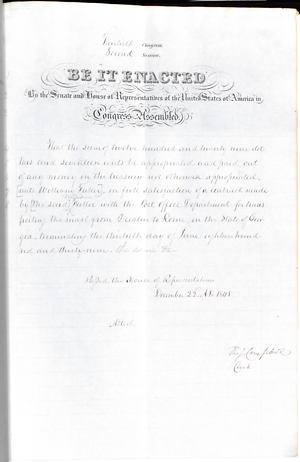 Thirtieth Congress
Second Session
BE IT ENACTED
By the Senate and House of Representatives of the United States of America in
Congress Assembled,
That the sum of twelve hundred and twenty nine dol
lars and seventeen cents be appropriated and paid out
of any money in the treasury not otherwise appropriated,
William Fuller, in full satisfaction of a contract made
by the said Fuller with the Post Office Department for trans
porting the mail from to Rome, in the State of Geor
gia, terminating the thirtieth day of June eighteen hund
red and thirty nine.
Passed the House of Representatives
December 22, AD 1848
Attest
Th. J. Campbell
Clerk